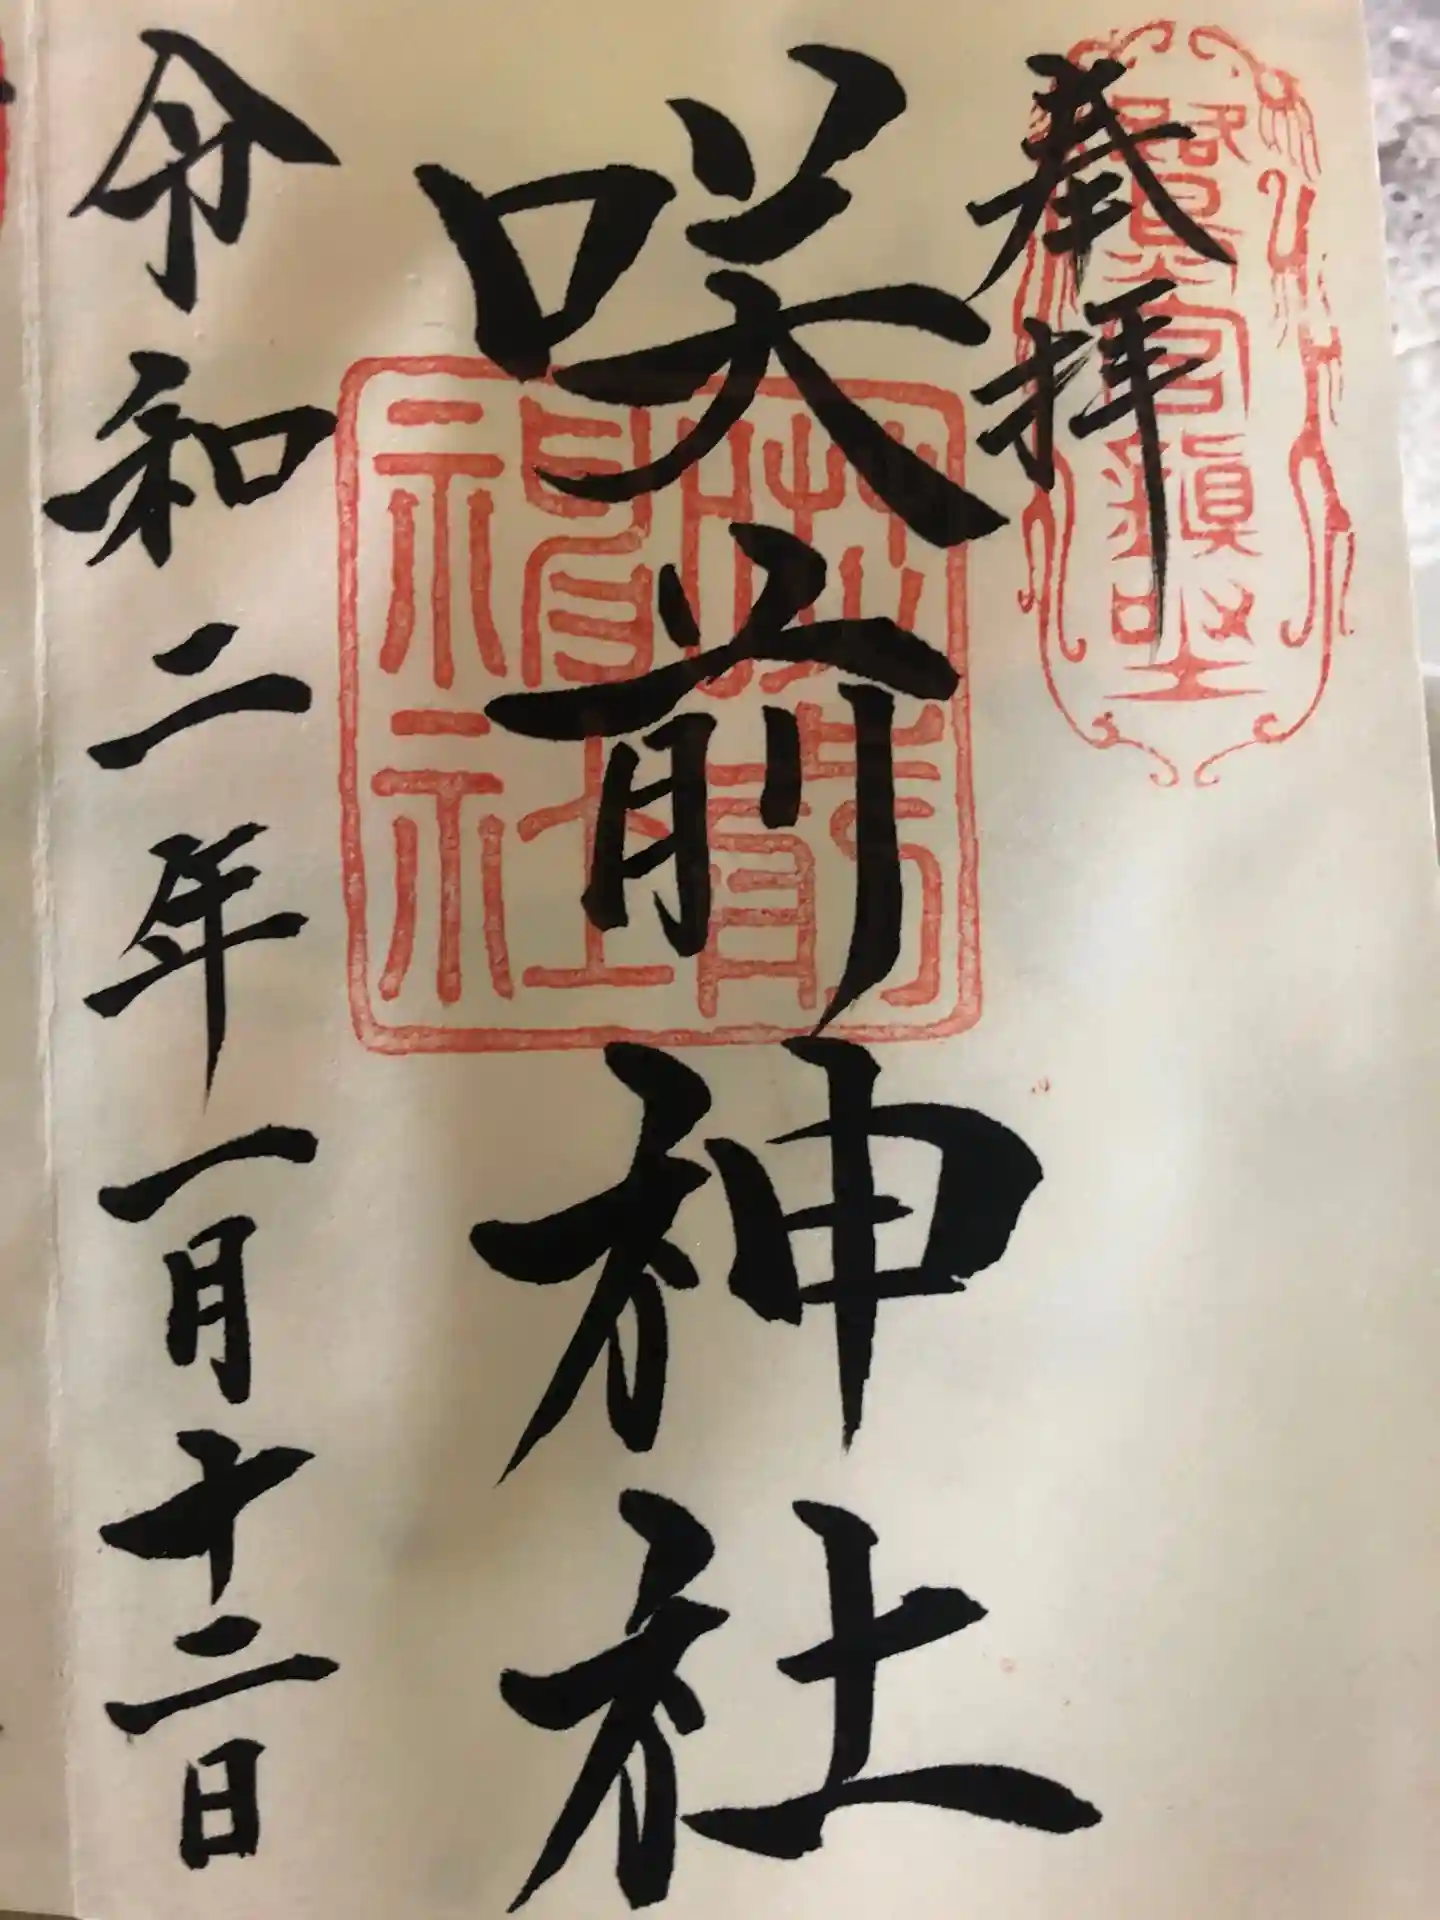 奉拝
鷺宮鎭坐
咲前神社
咲前
神社
令和二年一月十二日